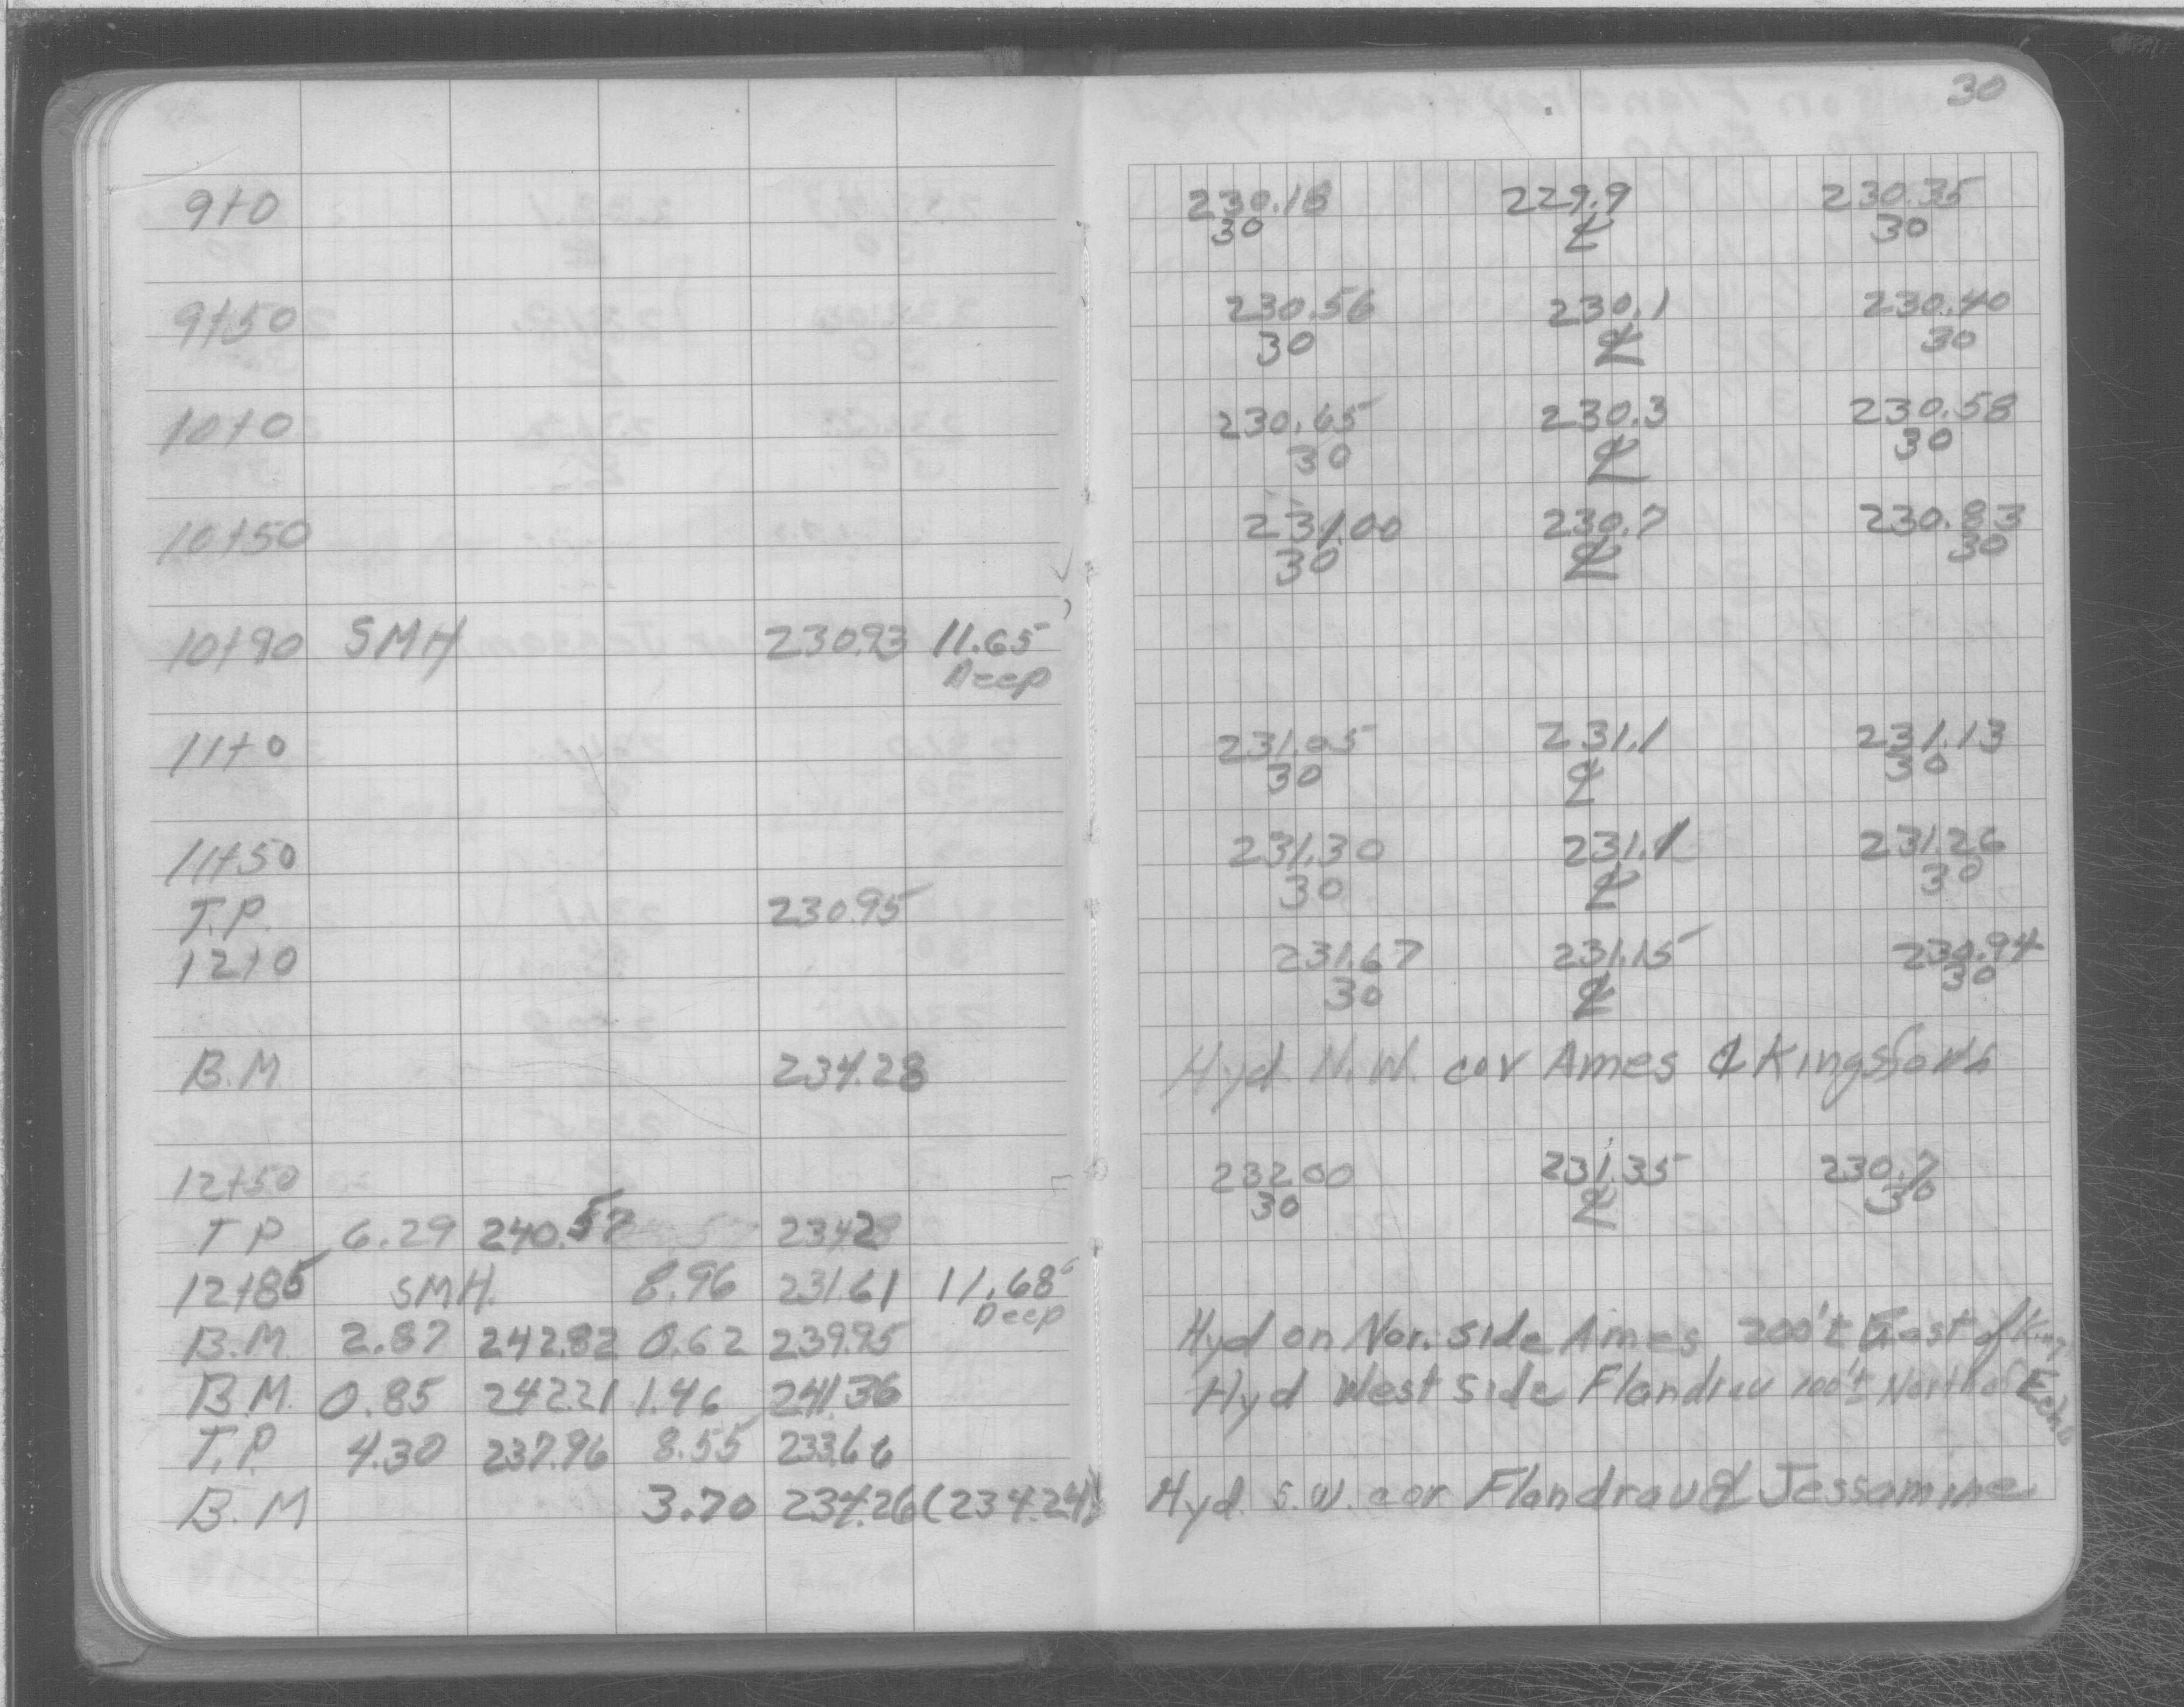 30
9+0 230.18 229.9 230.35
30 ℄ 30
9+50 230.56 230.1 230.40
30 ℄ 30
10+0 230.65 230.3 230.58
30 ℄ 30
10+50 231.00 230.7 230.83
30 ℄ 30
10+90 SMH 230.93 11.65
Deep
11+0 231.05 231.1 231.13
30 ℄ 30
11+50 231.30 231.1 231.26
30 ℄ 30
T.P. 230.95
12+0 231.67 231.15 230.94
30 ℄ 30
B.M. 234.28 Hyd N.W. cor Ames & Kingsford
12+50 232.00 231.35 230.7
30 ℄ 30
T P 6.29 240.57 234.28
12+85 SMH. 8.96 231.61 11.68
Deep
B.M. 2.87 242.82 0.62 239.95 Hyd on Nor. side Ames 200't East of King
B.M. 0.85 242.21 1.46 241.36 Hyd West side Flandrau 100't North of Echo
T.P. 4.30 237.96 8.55 233.66
B.M 3.70 234.26 (234.24) Hyd. S.W. cor Flandrau & Jessamine